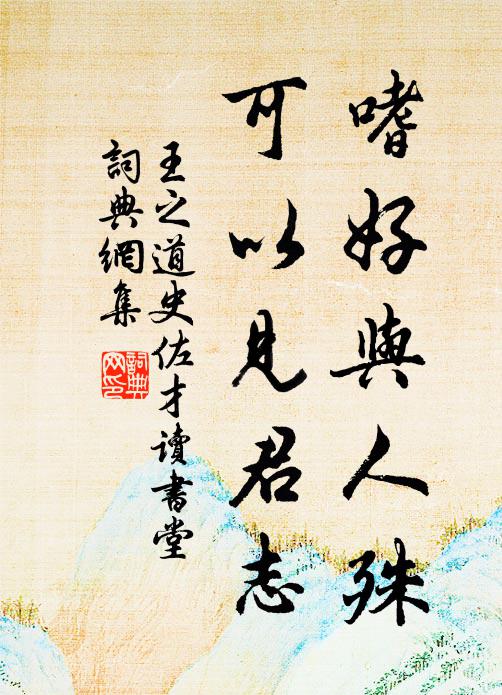 嗜好與人殊
可以見君志
王之道史佐才讀書堂
詞典網集
詞典网印